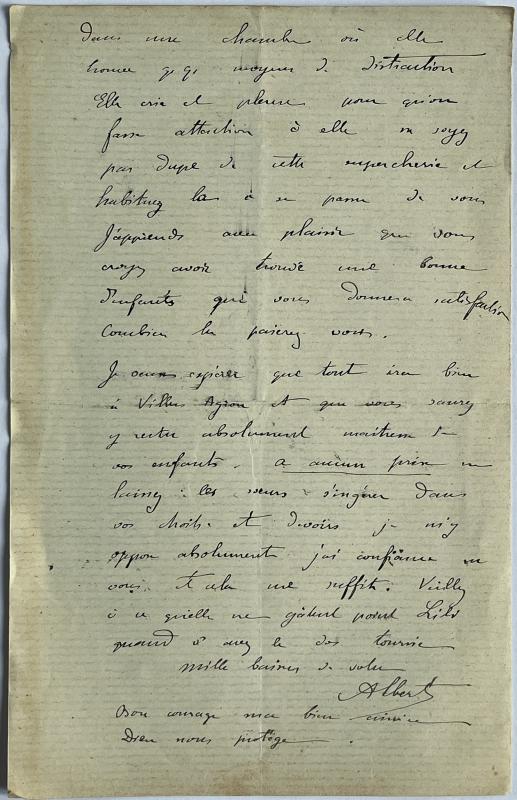 dans une chambre où elle
trouve qq moyens de distraction
Elle crie et pleure pour qu'on
fasse attention à elle ne soyez
pas dupe de cette supercherie et
habituez la à se passer de vous
J'apprends avec plaisir que vous
croyez avoir trouvé une bonne
d'enfants qui vous donnera satisfaction
Combien la paierez vous.
Je veux espérer que tout ira bien
à Villers Agron et que vous saurez
y rester absolument maitresse de
vos enfants. a aucun prix ne
laissez les sœurs s'ingérer dans
vos droits et devoirs je m'y
oppose absolument j'ai confiance en
vous et cela me suffit. Veillez
à ce qu'elle ne gâtent point Lili
quand v avez le dos tourné
Mille baisers de votre
Albert
Bon courage ma bien
Dieu nous protège.